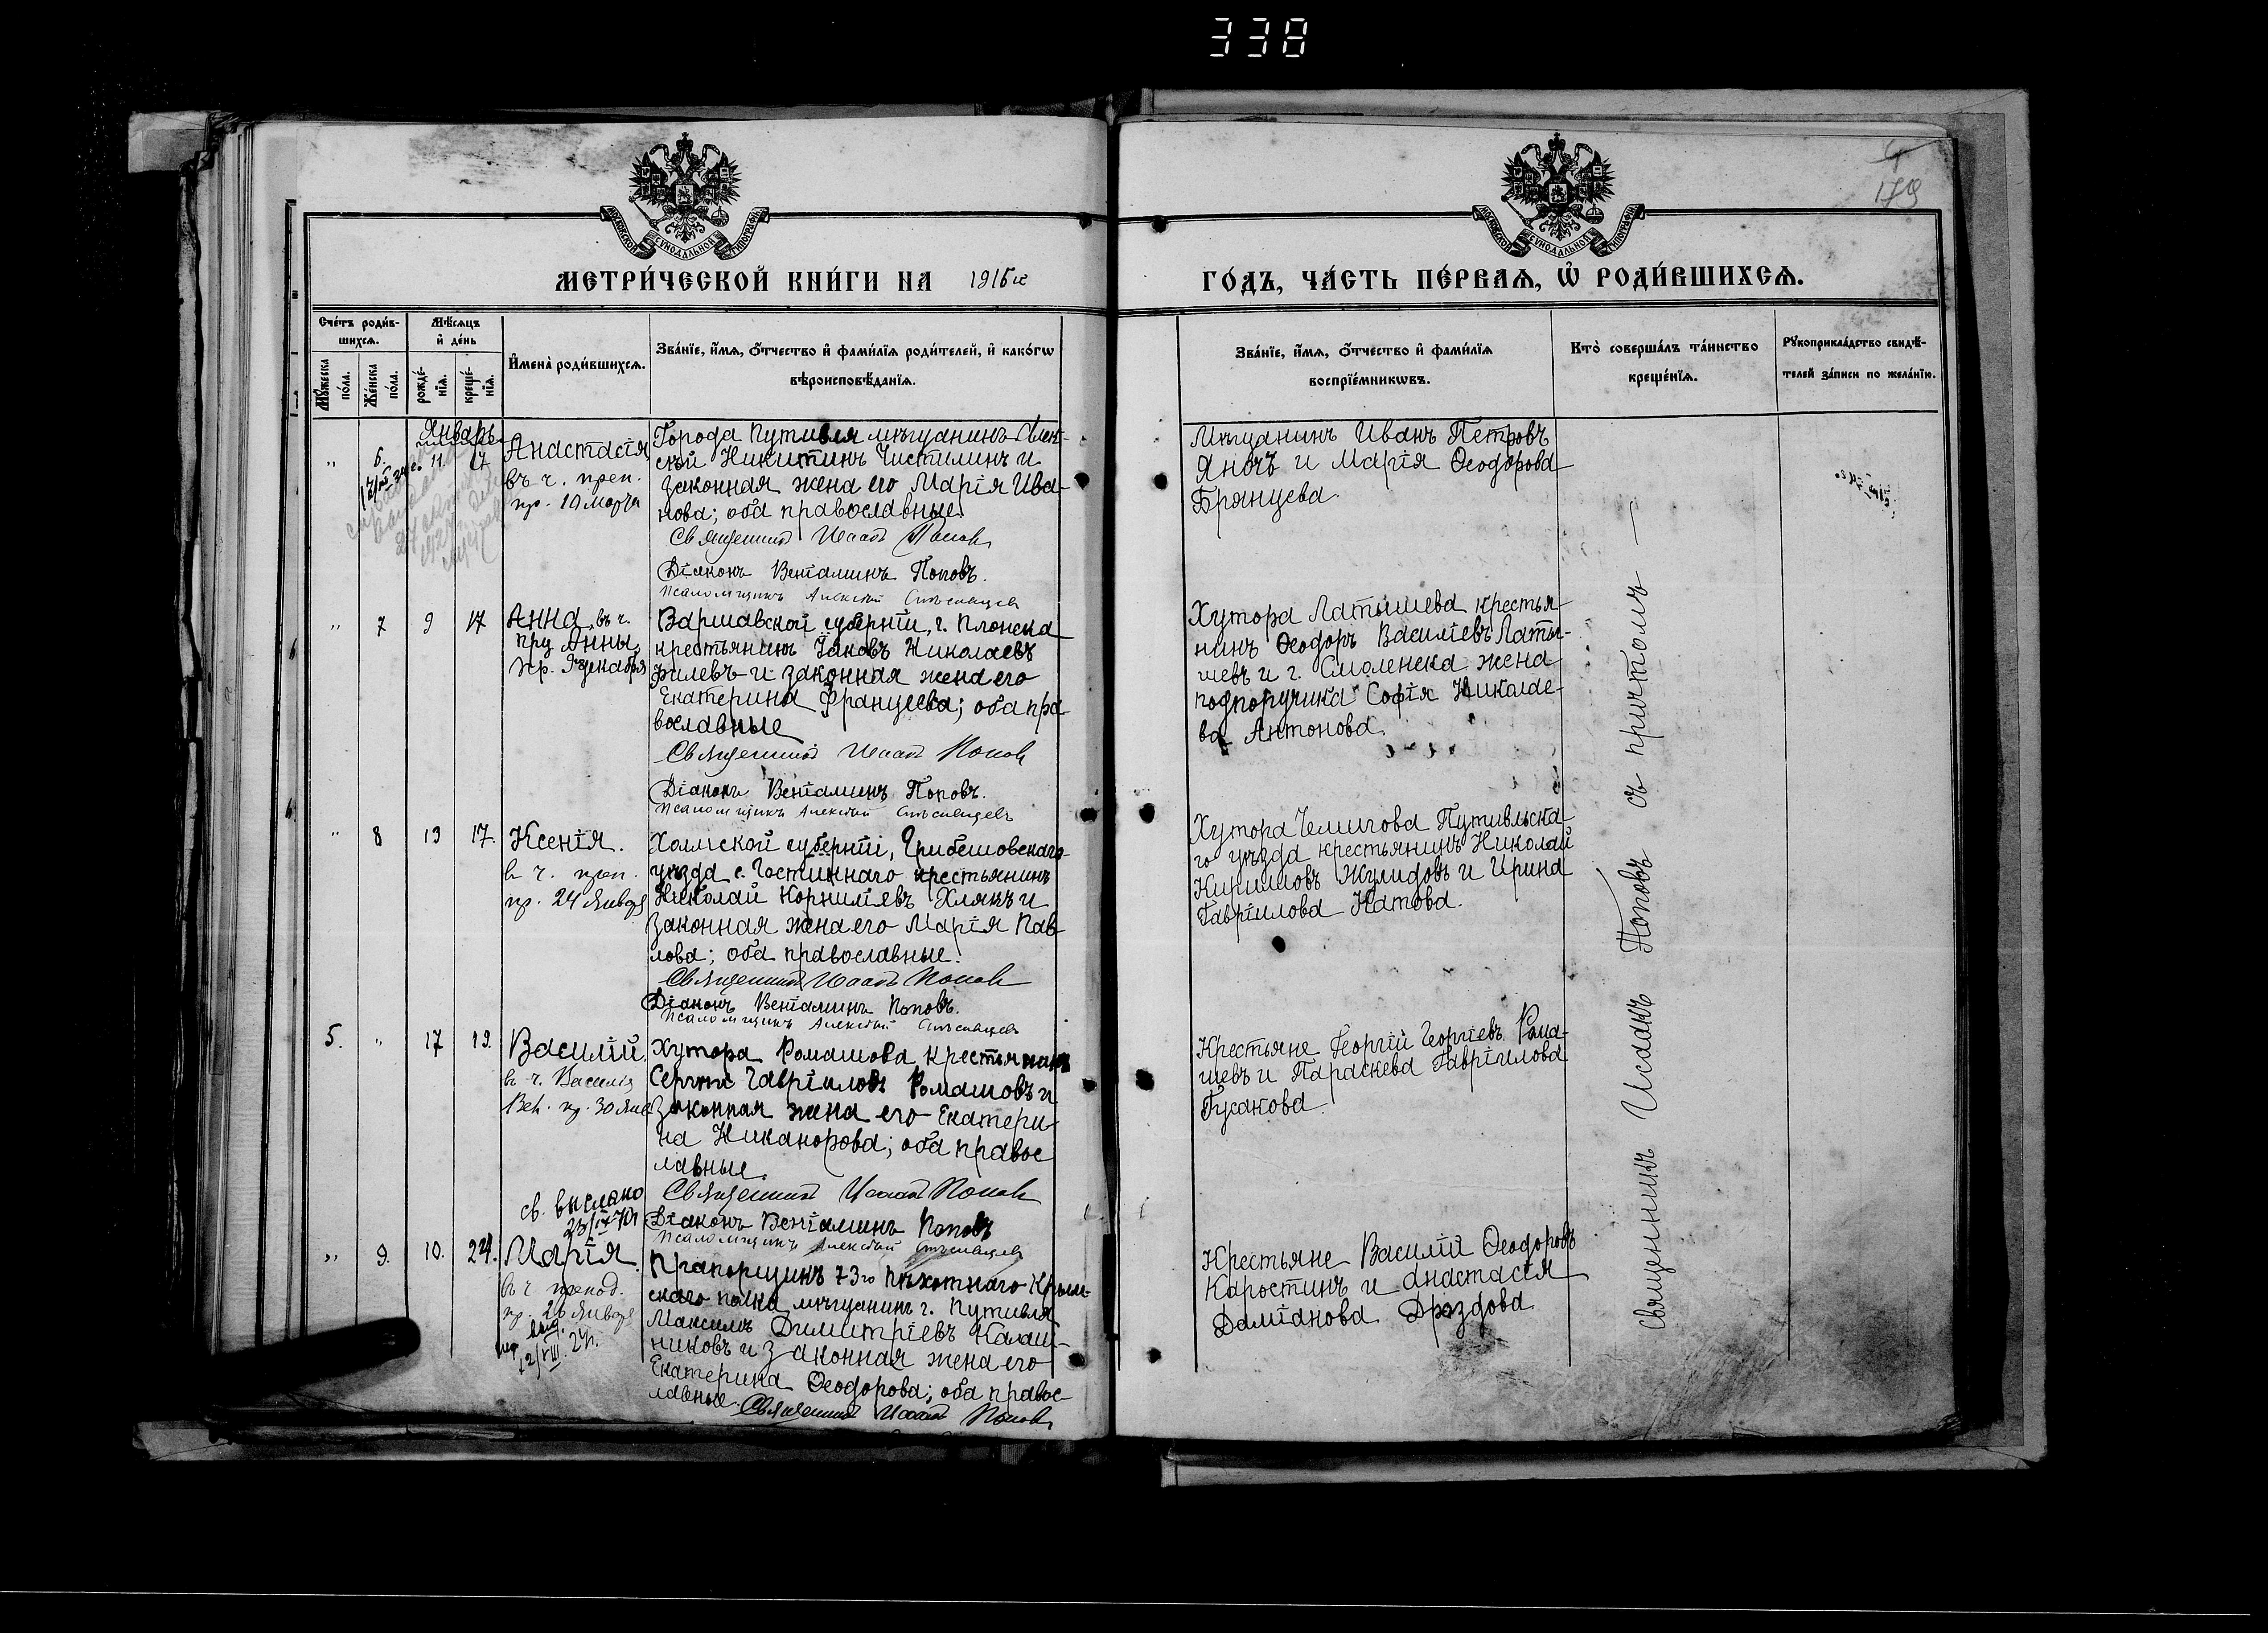 338
179
МОСКОВСКОЙ СѴНОДАЛЬНОЙ ТИПОГРАФІИ
МОСКОВСКОЙ СѴНОДАЛЬНОЙ ТИПОГРАФІИ
МЕТРИ́ЧЕСКОЙ КНИ́ГИ НА 1916й
ГО́ДЪ, ЧА́СТЬ ПЕ́РВАѦ, Ѡ҆ РОДИ́ВШИХСѦ.
Сче́тъ роди́в-
шихсѧ.
Мꙋ́жеска по́ла.
Же́нска по́ла.
Мѣ́сѧцъ
и҆ де́нь
рожде́-нїѧ.
креще́-нїѧ.
И҆мена̀ роди́вшихсѧ.
Зва́нїе, и҆́мѧ, ѻ҆́тчество и҆ фами́лїѧ роди́телей, и҆ како́гѡ
вѣроисповѣ́данїѧ.
Зва́нїе, и҆́мѧ, ѻ҆́тчество и҆ фами́лїѧ
воспрїе́мникѡвъ.
Кто̀ соверша́лъ та́инство
креще́нїѧ.
Рꙋкоприкла́дство свидѣ́-
телей за́писи по жела́нїю.
Январь
" 6. 11. 17
Анастасія
въ ч. преп.
пр. 10 марта
Города Путивля мѣщанинъ
Никитинъ Чистилинъ и
законная жена его Марія Ива-
нова; оба православные.
Священник Исаак Попов
Діаконъ Веніаминъ Поповъ.
Псаломщикъ Алексѣй
Мѣщанинъ Иванъ Петровъ
и Марія Ѳеодорова
Брянцева.
" 7 9 17
Анна, въ ч.
прц Анны,
пр. 9 декабря
Варшавской губерніи, г. Плонска
крестьянинъ Іаковъ Николаевъ
Филевъ и законная жена его
Екатерина Францеева; оба пра-
вославные
Священник Исаак Попов
Діаконъ Веніаминъ Поповъ.
Псаломщикъ Алексѣй
Хутора Латышева крестья-
нинъ Ѳеодоръ Василіевъ Латы-
шевъ и г. Смоленска жена
подпоручика Софія Николае-
ва Антонова.
" 8 13 17.
Ксенія.
в ч. преп.
пр. 24 Января
Холмской губерніи, Грубешовскаго
уѣзда с. Гостиннаго крестьянинъ
Николай Корниліевъ Хлякъ и
законная жена его Марія Пав-
лова; оба православные.
Священник Исаак Попов
Діаконъ Веніаминъ Поповъ.
Псаломщикъ Алексѣй
Хутора Чемигова Путивльска-
го уѣзда крестьянинъ Николай
Кирилловъ Жулидовъ и Ирина
Гавріилова Катова.
5. " 17 19.
Василій.
в ч. Василія
Вел. пр. 30 Янв.
Хутора Ромашова крестьянинъ
Сергій Гавріиловъ Ромашовъ и
законная жена его Екатери-
на Никанорова; оба правос
лавные.
Священник Исаак Попов
Діаконъ Веніаминъ Поповъ
Псаломщикъ Алексѣй
Крестьяне Георгій Георгіевъ Рома-
шевъ и Параскева Гавріилова
Гусакова.
св. выслано
" 9. 10. 24.
Марія.
въ ч препод.
пр. 26 Января
Прапорщикъ 73го пѣхотнаго Крым-
скаго полка, мѣщанинъ г. Путивля
Максимъ Димитріевъ Калаш-
никовъ и законная жена его
Екатерина Ѳеодорова; оба правос-
лавные.
Священник Исаак Попов
Крестьяне Василій Ѳеодоровъ
Каростинъ и Анастасія
Даміанова Дроздова
Священникъ Исаакъ Поповъ съ причтомъ —